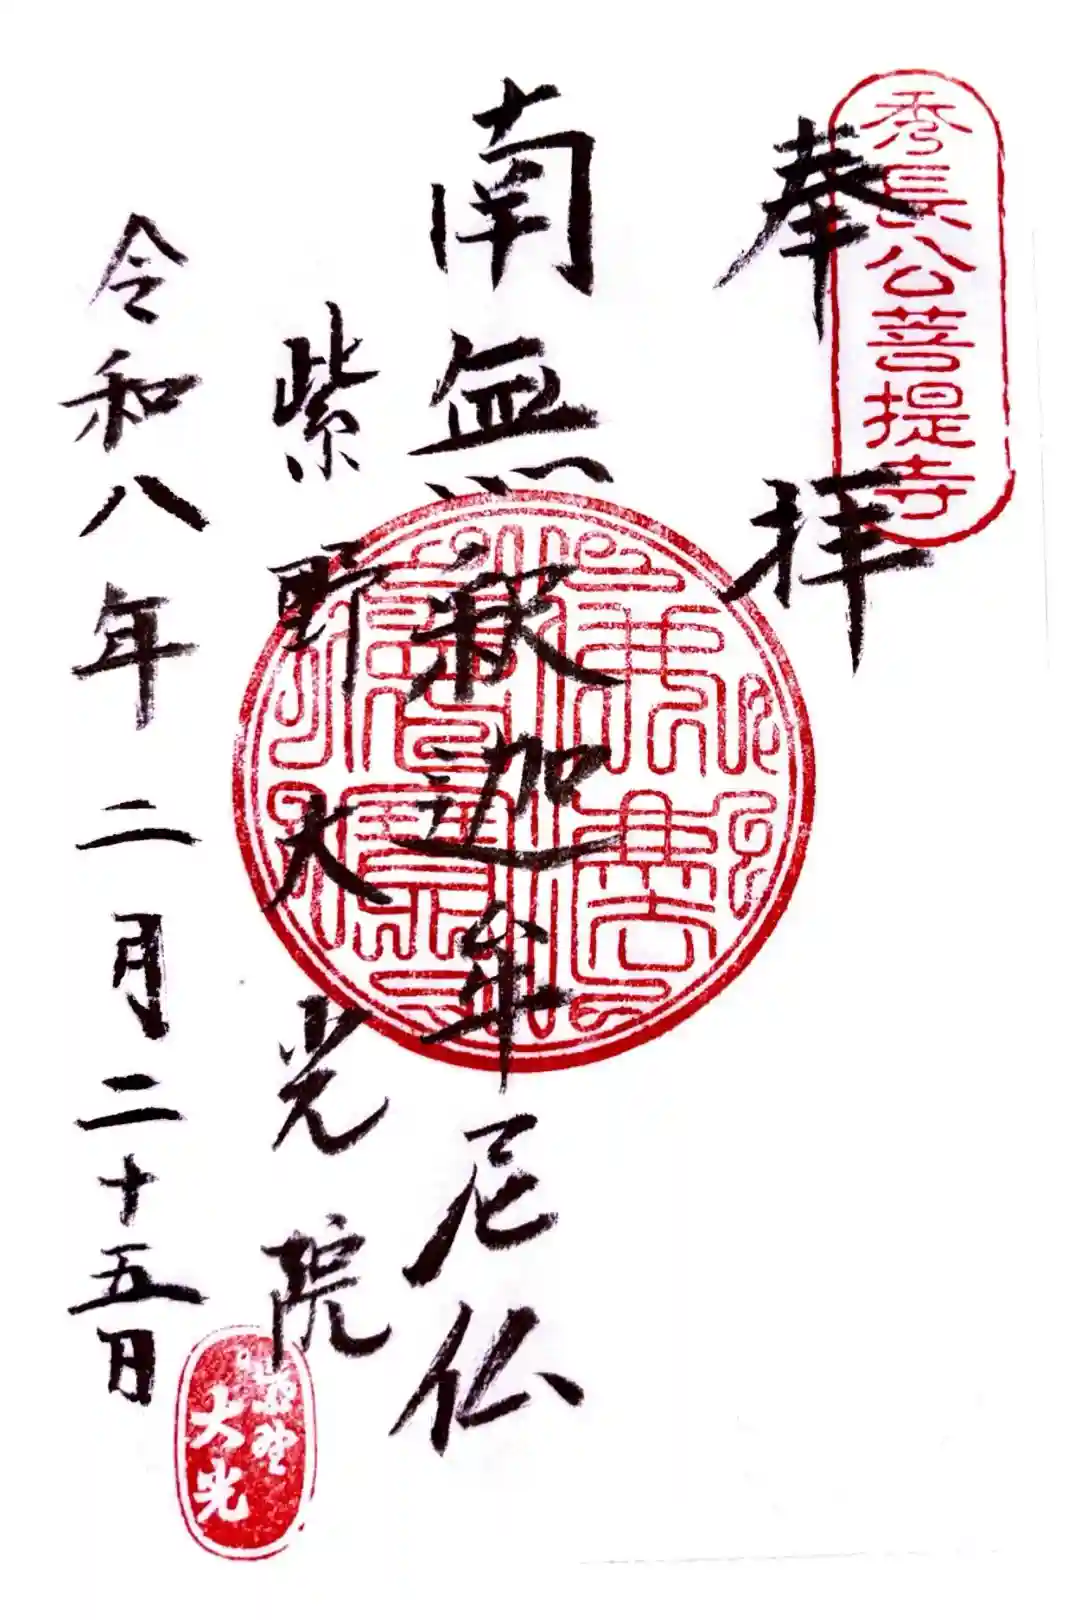 秀長公菩提寺
奉拝
南無釈迦牟尼仏
紫野大光院
令和八年二月二十五日
紫野
大光